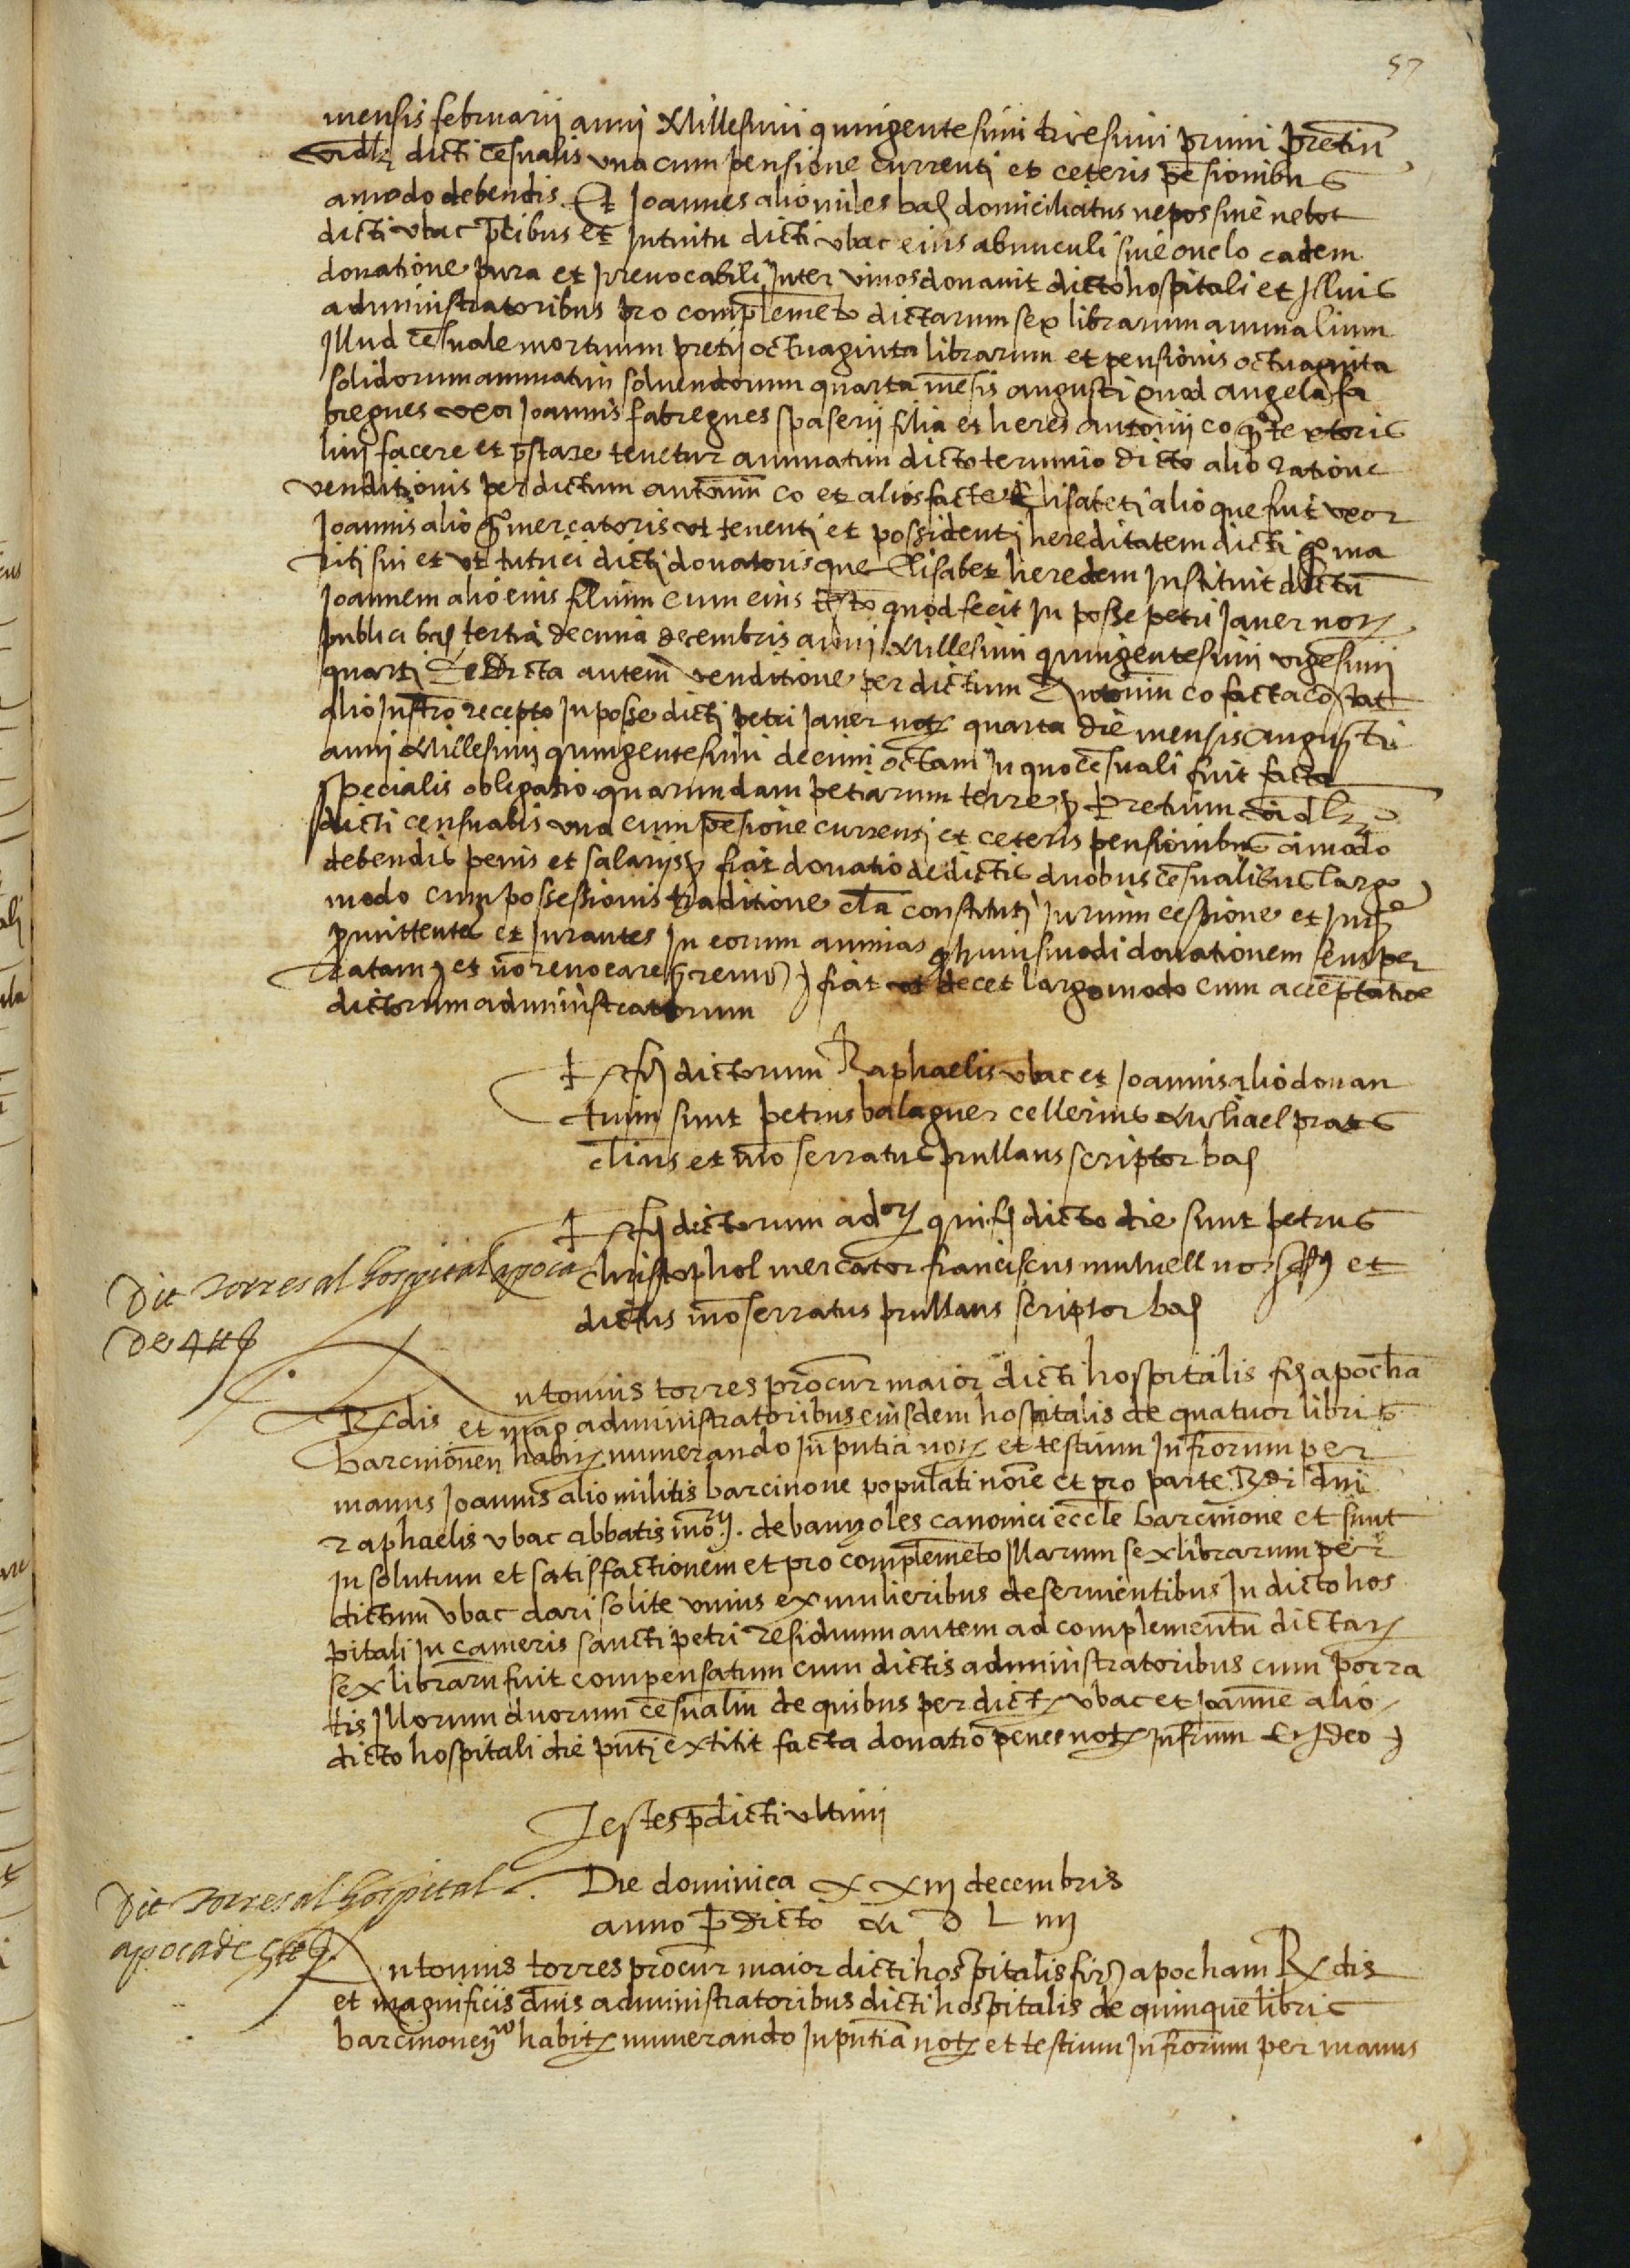 57
mensis februarij anni Millesimi quingentesimi tricesimi primi pretiũ
vidlz dicti cẽsualis vna cum pensione currenti et ceteris pẽsionibus
amodo debendis Et Joannes alio miles bar domiciliatus nepos siue nebot
dicti vbac p̃cibus et Jntuitu dicti vbac eius abunculi siue onclo eadem
donatione pura et Jrreuocabili Jnter viuos donauit dicto hospitali et Jllius
administratoribus pro complemẽto dictarum sex librarum annualium
Jllud cẽsuale mortuum pretij octuaginta librarum et pensionis octuaginta
solidorum annuatim soluendorum quarta mẽsis augusti quod angela fa
bregues vxor Joannis fabregues spaserij filia et heres antonij co qº textoris
linj facere et p̃stare tenetur annuatim dicto termino dicto alio ratione
venditionis per dictum antoniũ co et alios facte Elisabeti alio que fuit vxor
Joannis alio qº mercatoris vt tenenti et possidenti hereditatem dicti qº ma
riti sui et vt tutrici dicti donatoris que Elisabet heredem Jnstituit dictũ
Joannem alio eius filium cum eius testo quod fecit Jn posse petri Janer notz
publici bar tertia decima decembris anni Millesimi quingentesimi vigesimi
quarti De dicta autem venditione per dictum Antoniũ co facta cõstat
alio Jnstrõ recepto Jn posse dicti petri Janer notz quarta die mensis augusti
anni Millesimi quingentesimi decimi octaui Jn quo cẽsuali fuit facta
specialis obligatio quarundam petiarum terre Pretium vidlz
dicti censualis vna cum pẽsione currenti et ceteris pensionibus amodo
debendis penis et salarijs fiat donatio de dictis duobus cẽsualibus largo
modo cum possessionis traditione cla constituti Jurium cessione et
p̃mittentes et Jurantes Jn eorum animas q huiusmodi donationem semper
ratam et nõ reuocare fiat vt decet largo modo cum acceptatioe
dictorum administratorum
Testes dictorum Raphaelis vbac et Joannis alio donan
tium sunt petrus balaguer cellerius Michael prats
clicus et mõserratus prullans scriptor bar
Testes dictorum adorz qui dicto die sunt petrus
christophol mercator franciscus mulnell et
dictus mõserratus prullans scriptor bar
Dit Torres al hospital apoca
de 4 ll
Antonius torres procur maior dicti hospitalis firt apocha
Rxdis et mag administratoribus eiusdem hospitalis de quatuor libris
barcinonen habitz numerando Jn p̃ntia notz et testium Jnfrorum per
manus Joannis alio militis barcinone populati noĩe et pro parte Rdi dni
raphaelis vbac abbatis mõrij. de banyoles canonici eccle barcinone et sunt
Jn solutum et satisfactionem et pro complemẽto Jllarum sex librarum per
dictum vbac dari solite vnius ex mulieribus deseruientibus Jn dicto hos
pitali Jn cameris sancti petri residuum autem ad complementũ dictarz
sex librarũ fuit compensatum cum dictis administratoribus cum porra
tis Jllorum duorum cẽsualiũ de quibus per dictz vbac et Joannẽ alio
dicto hospitali die p̃nti extitit facta donatio penes notz Jnfrum Et Jdeo
Testes p̃dicti vltimi
Die dominica xxiij decembris
anno p̃dicto M D L iiij
Dit Torres al hospital
apoca de 5 ll
Antonius torres procur maior dicti hospitalis firt apocham Rxdis
et magnificis dnis administratoribus dicti hospitalis de quinque libris
barcinonen habitz numerando Jn p̃ntia notz et testium Jnfrorum per manus